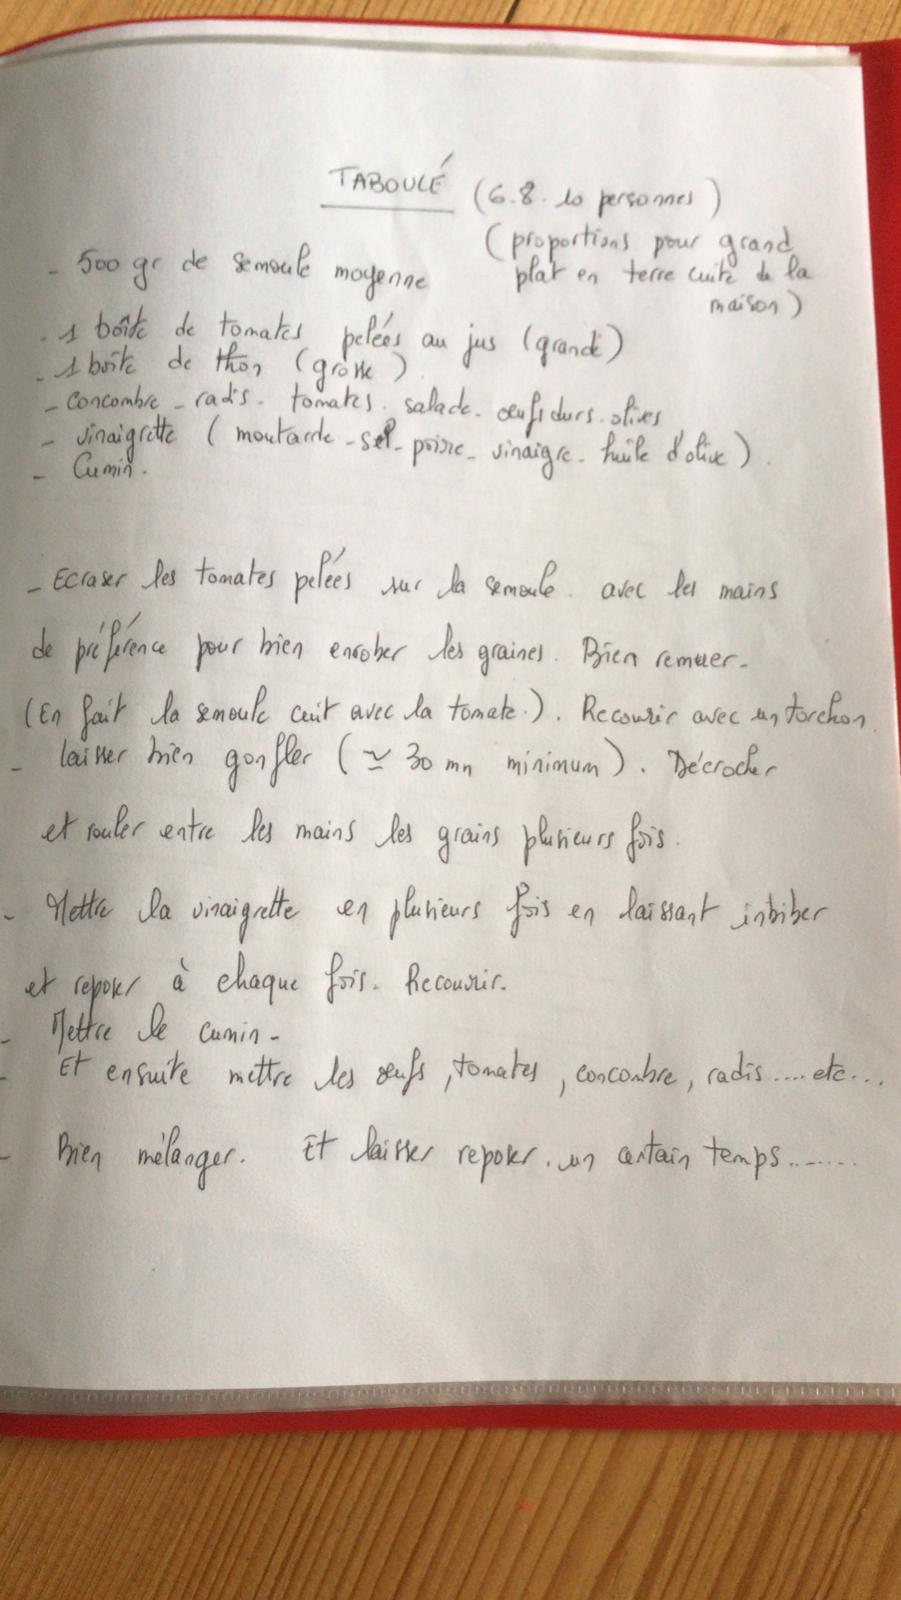 TABOULÉ (6.8. 10 personnes)
(proportions pour grand
plat en terre cuite de la
maison)
- 500 gr de semoule moyenne
. 1 boîte de tomates pelées au jus (grande)
- 1 boîte de thon (grosse)
- concombre - radis. tomates. salade. œufs durs. olives
- vinaigrette ( moutarde - sel - poivre - vinaigre. huile d'olive).
- Cumin.
- Ecraser les tomates pelées sur la semoule. avec les mains
de préférence pour bien enrober les graines. Bien remuer.
(En fait la semoule cuit avec la tomate.). Recouvrir avec un torchon.
- laisser bien gonfler (≃ 30 mn minimum). Décrocher
et rouler entre les mains les grains plusieurs fois.
- Mettre la vinaigrette en plusieurs fois en laissant imbiber
et reposer à chaque fois. Recouvrir.
- Mettre le cumin -
- Et ensuite mettre les œufs, tomates, concombre, radis..... etc...
- Bien mélanger. Et laisser reposer. un certain temps.......